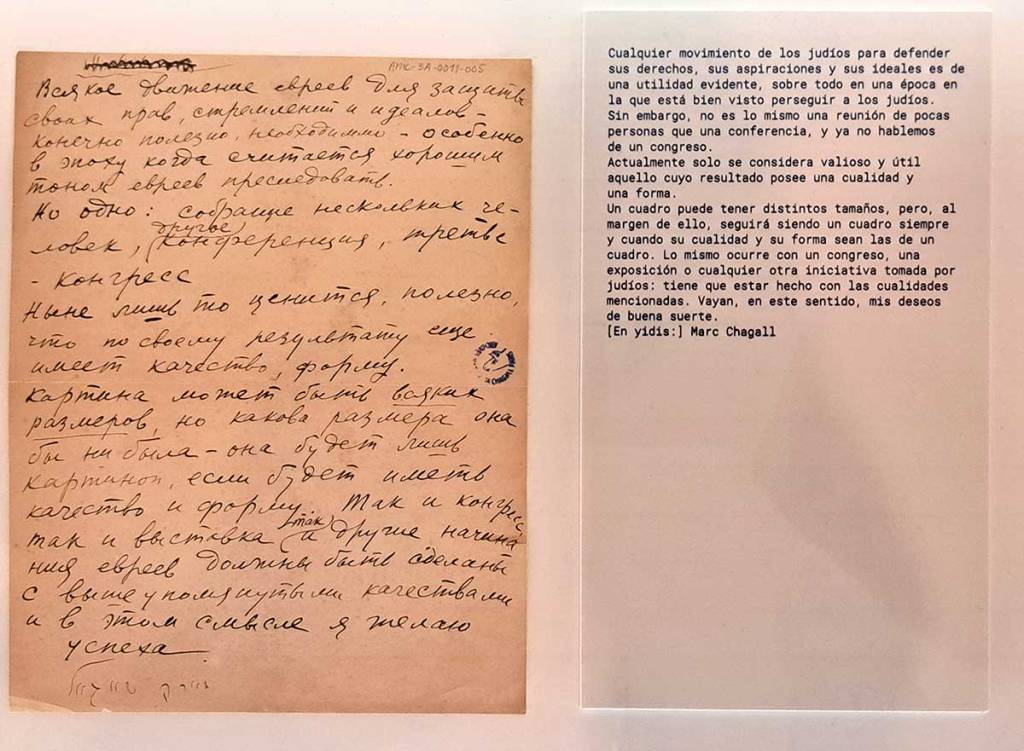 АМК-ЗА-0011-005
Всякое движение евреев для защиты
своих прав, стремлений и идеалов -
конечно полезно, необходимо - особенно
в эпоху когда считается хорошим
тоном евреев преследовать.
Но одно: собрание нескольких че-
ловек, другое конференция, третье
- конгресс
Ныне лишь то ценится, полезно,
что по своему результату еще
имеет качество, форму.
Картина может быть всяких
размеров, но какова размера она
бы ни была - она будет лишь
картиной, если будет иметь
качество и форму. Так и конгресс,
так и выставка так и другие начина
ния евреев должны быть сделаны
с вышеупомянутыми качествами
и в этом смысле я желаю
успеха
מארק שאגאל
Cualquier movimiento de los judíos para defender
sus derechos, sus aspiraciones y sus ideales es de
una utilidad evidente, sobre todo en una época en
la que está bien visto perseguir a los judíos.
Sin embargo, no es lo mismo una reunión de pocas
personas que una conferencia, y ya no hablemos
de un congreso.
Actualmente solo se considera valioso y útil
aquello cuyo resultado posee una cualidad y
una forma.
Un cuadro puede tener distintos tamaños, pero, al
margen de ello, seguirá siendo un cuadro siempre
y cuando su cualidad y su forma sean las de un
cuadro. Lo mismo ocurre con un congreso, una
exposición o cualquier otra iniciativa tomada por
judíos: tiene que estar hecho con las cualidades
mencionadas. Vayan, en este sentido, mis deseos
de buena suerte.
[En yidis:] Marc Chagall